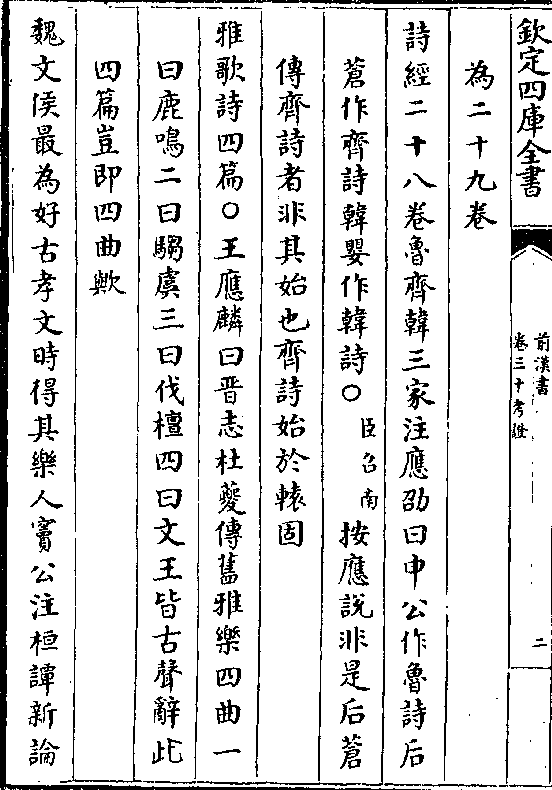 欽定四庫全書
前漢書
卷三十考證
二
為二十九卷
詩經二十八卷魯齊韓三家注應劭曰申公作魯詩后
蒼作齊詩韓嬰作韓詩○臣召南按應說非是后蒼
傳齊詩者非其始也齊詩始於轅固
雅歌詩四篇○王應麟曰晉志杜夔傳舊雅樂四曲一
曰鹿鳴二曰騶虞三曰伐檀四曰文王皆古聲辭此
四篇豈即四曲歟
魏文侯最為好古孝文時得其樂人竇公注桓譚新論